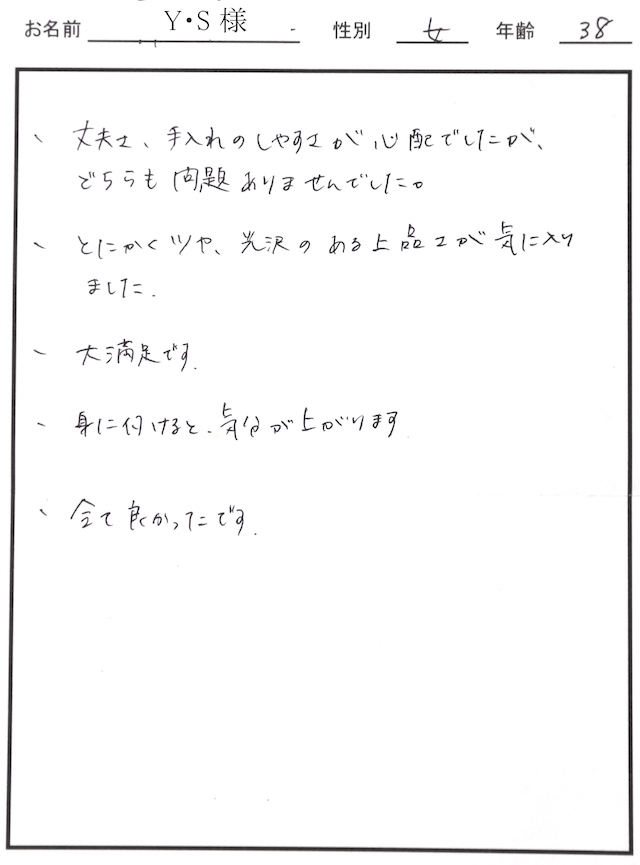 お名前 Y・S様 性別 女 年齢 38
、丈夫さ、手入れのしやすさが心配でしたが、
どちらも問題ありませんでした。
、とにかくツヤ、光沢のある上品さが気に入り
ました.
、大満足です.
、身に付けると、気分が上がります
、全て良かったです.